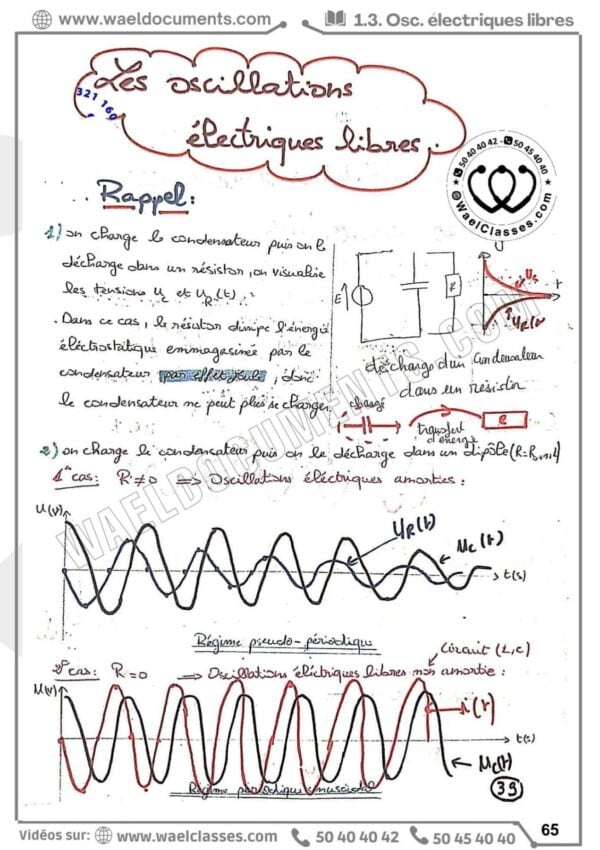 www.waeldocuments.com
1.3. Osc. électriques libres
Les oscillations
321 160
électriques libres.
50 40 40 42 - 50 45 40 40
@WaelClasses.com
Rappel:
1) on charge le condensateur puis on le
décharge dans un résistor, on visualise
les tensions Uc et UR(t).
. Dans ce cas, le résistor dissipe l'énergie
éléctrostatique emmagasinée par le
condensateur par effet joule, donc
le condensateur ne peut plus se charger.
E
R
U
t
UR(t)
décharge d'un condensateur
dans un résistor
chargé
transfert
d'énergie
2) on charge le condensateur puis on le décharge dans un dipôle
1er cas: R≠0 ⟹ Oscillations éléctriques amorties:
U(V)
UR(t)
uc(t)
t(s)
Régime pseudo-périodique
2e cas: R=0 ⟹ Oscillations éléctriques libres non amortie:
circuit (L,C)
U(V)
i(t)
t(s)
uc(t)
39
WAELDOCUMENTS.COM
65
Vidéos sur: www.waelclasses.com 50 40 40 42 50 45 40 40